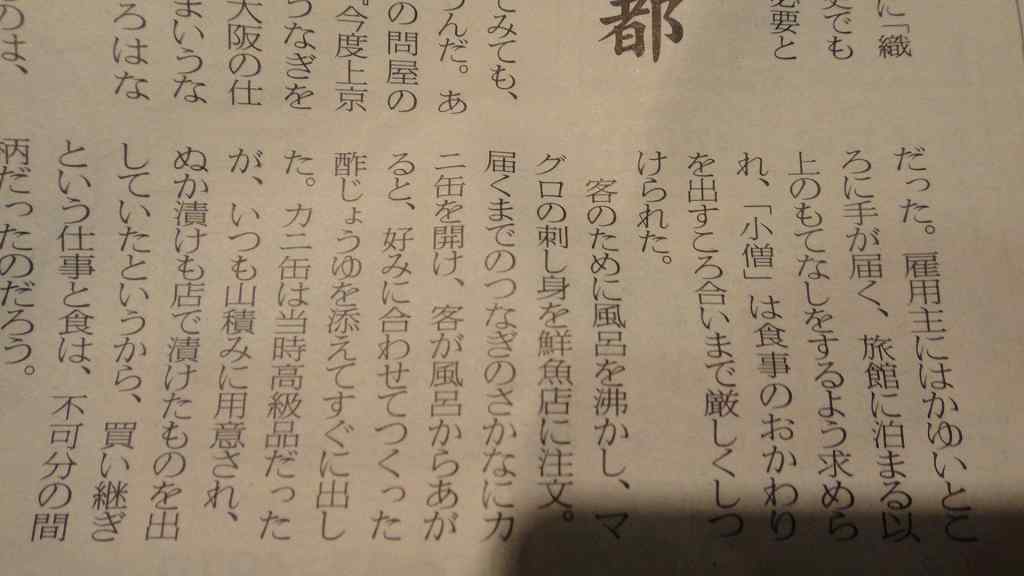 に「織
史でも
必要と
都
てみても、
うんだ。あ
の問屋の
。今度上京
つなぎを
大阪の仕
まいうな
ろはな
のは、
だった。雇用主にはかゆいとこ
ろに手が届く、旅館に泊まる以
上のもてなしをするよう求めら
れ、「小僧」は食事のおかわり
を出すころ合いまで厳しくしつ
けられた。
客のために風呂を沸かし、マ
グロの刺し身を鮮魚店に注文。
届くまでのつなぎのさかなにカ
ニ缶を開け、客が風呂からあが
ると、好みに合わせてつくった
酢じょうゆを添えてすぐに出し
た。カニ缶は当時高級品だった
が、いつも山積みに用意され、
ぬか漬けも店で漬けたものを出
していたというから、買い継ぎ
という仕事と食は、不可分の間
柄だったのだろう。